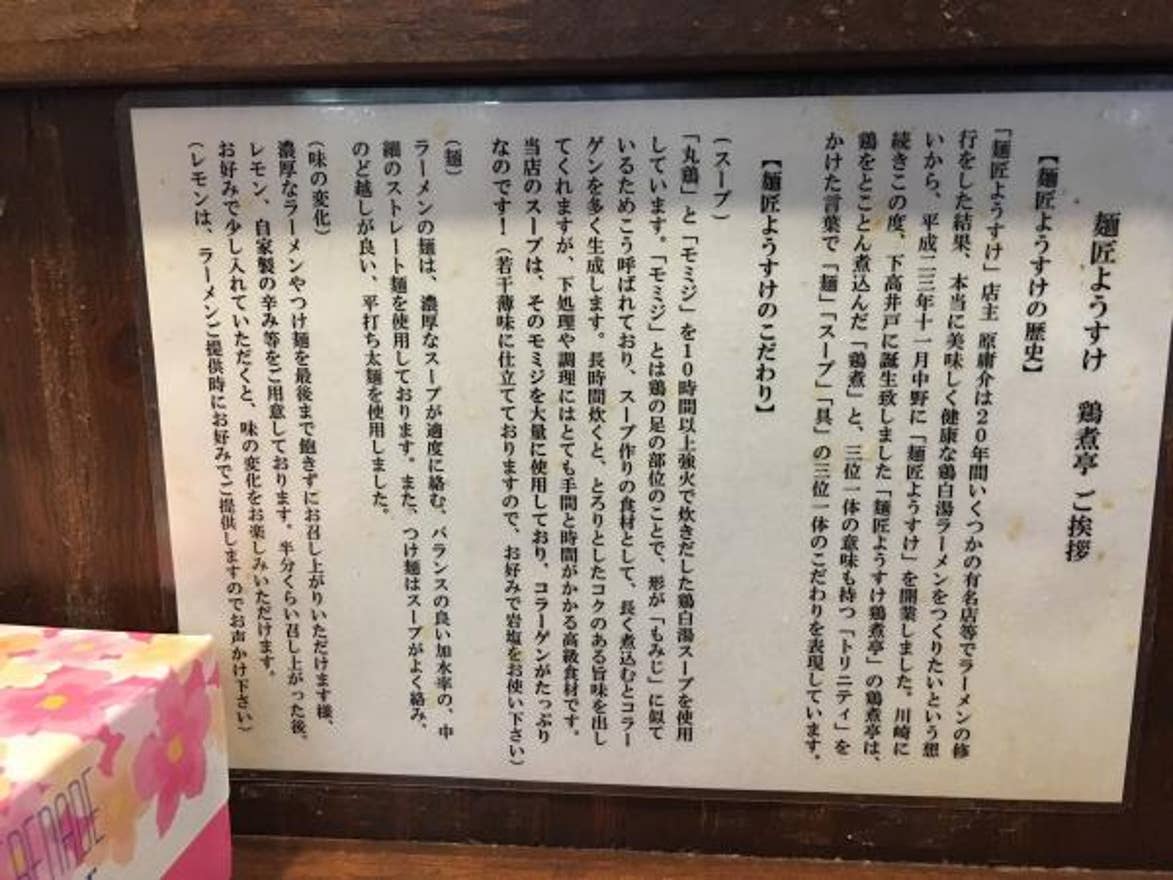 麺匠ようすけ 鶏煮亭 ご挨拶
【麺匠ようすけの歴史】
「麺匠ようすけ」店主 原庸介は２０年間いくつかの有名店等でラーメンの修
行をした結果、本当に美味しく健康な鶏白湯ラーメンをつくりたいという想
いから、平成二三年十一月中野に「麺匠ようすけ」を開業しました。川崎に
続きこの度、下高井戸に誕生致しました「麺匠ようすけ鶏煮亭」の鶏煮亭は、
鶏をとことん煮込んだ「鶏煮」と、三位一体の意味も持つ「トリニティ」を
かけた言葉で「麺」「スープ」「具」の三位一体のこだわりを表現しています。
【麺匠ようすけのこだわり】
（スープ）
「丸鶏」と「モミジ」を１０時間以上強火で炊きだした鶏白湯スープを使用
しています。「モミジ」とは鶏の足の部位のことで、形が「もみじ」に似て
いるためこう呼ばれており、スープ作りの食材として、長く煮込むとコラー
ゲンを多く生成します。長時間炊くと、とろりとしたコクのある旨味を出し
てくれますが、下処理や調理にはとても手間と時間がかかる高級食材です。
当店のスープは、そのモミジを大量に使用しており、コラーゲンがたっぷり
なのです！（若干薄味に仕立てておりますので、お好みで岩塩をお使い下さい）
（麺）
ラーメンの麺は、濃厚なスープが適度に絡む、バランスの良い加水率の、中
細のストレート麺を使用しております。また、つけ麺はスープがよく絡み、
のど越しが良い、平打ち太麺を使用しました。
（味の変化）
濃厚なラーメンやつけ麺を最後まで飽きずにお召し上がりいただけます様、
レモン、自家製の辛み等をご用意しております。半分くらい召し上がった後、
お好みで少し入れていただくと、味の変化をお楽しみいただけます。
（レモンは、ラーメンご提供時にお好みでご提供しますのでお声かけ下さい）